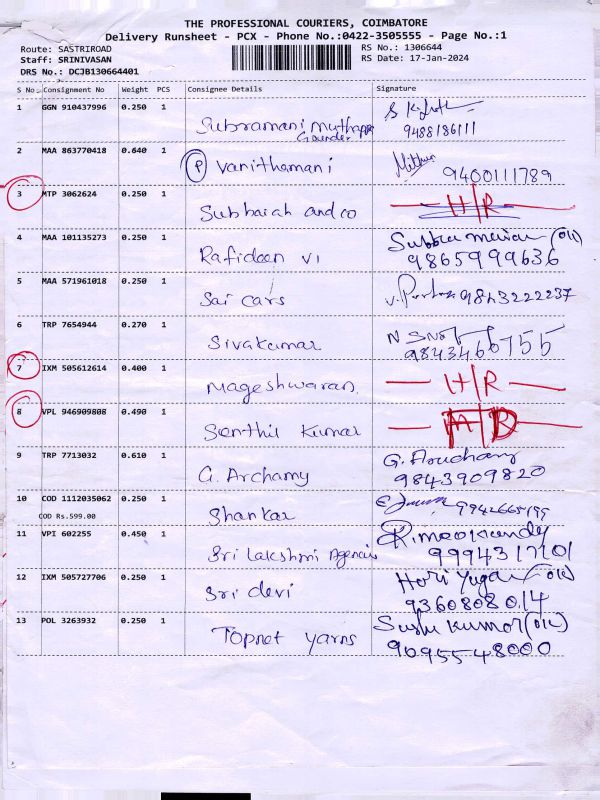 THE PROFESSIONAL COURIERS, COIMBATORE
Delivery Runsheet - PCX - Phone No.:0422-3505555 - Page No.:1
Route: SASTRIROAD
RS No.: 1306644
Staff: SRINIVASAN
RS Date: 17-Jan-2024
DRS No.: DCJB130664401
S No Consignment No Weight PCS Consignee Details Signature
1 GGN 910437996 0.250 1
Subramani Muthappa
Gounder
9488186111
2 MAA 863770418 0.640 1
(P) Vanithamani
9400111789
3 MTP 3062624 0.250 1
Subbaiah and co
H/R
4 MAA 101135273 0.250 1
Rafideen VI
9865999636
5 MAA 571961018 0.250 1
Sai cars
9843222237
6 TRP 7654944 0.270 1
Sivakumar
9843466755
7 IXM 505612614 0.400 1
Mageshwaran
H/R
8 VPL 946909808 0.490 1
Senthil Kumar
9 TRP 7713032 0.610 1
G. Archamy
9843909820
10 COD 1112035062 0.250 1
COD Rs.599.00
Shankar
9942665199
11 VPI 602255 0.450 1
Sri Lakshmi Agencies
9994317101
12 IXM 505727706 0.250 1
Sri devi
9360808014
13 POL 3263932 0.250 1
Topnet yarns
9095548000